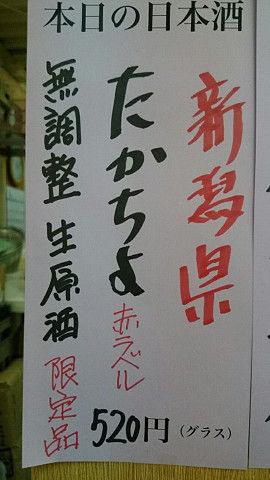 本日の日本酒
新潟県
たかちよ 赤ラベル
無調整 生原酒 限定品
520円（グラス）